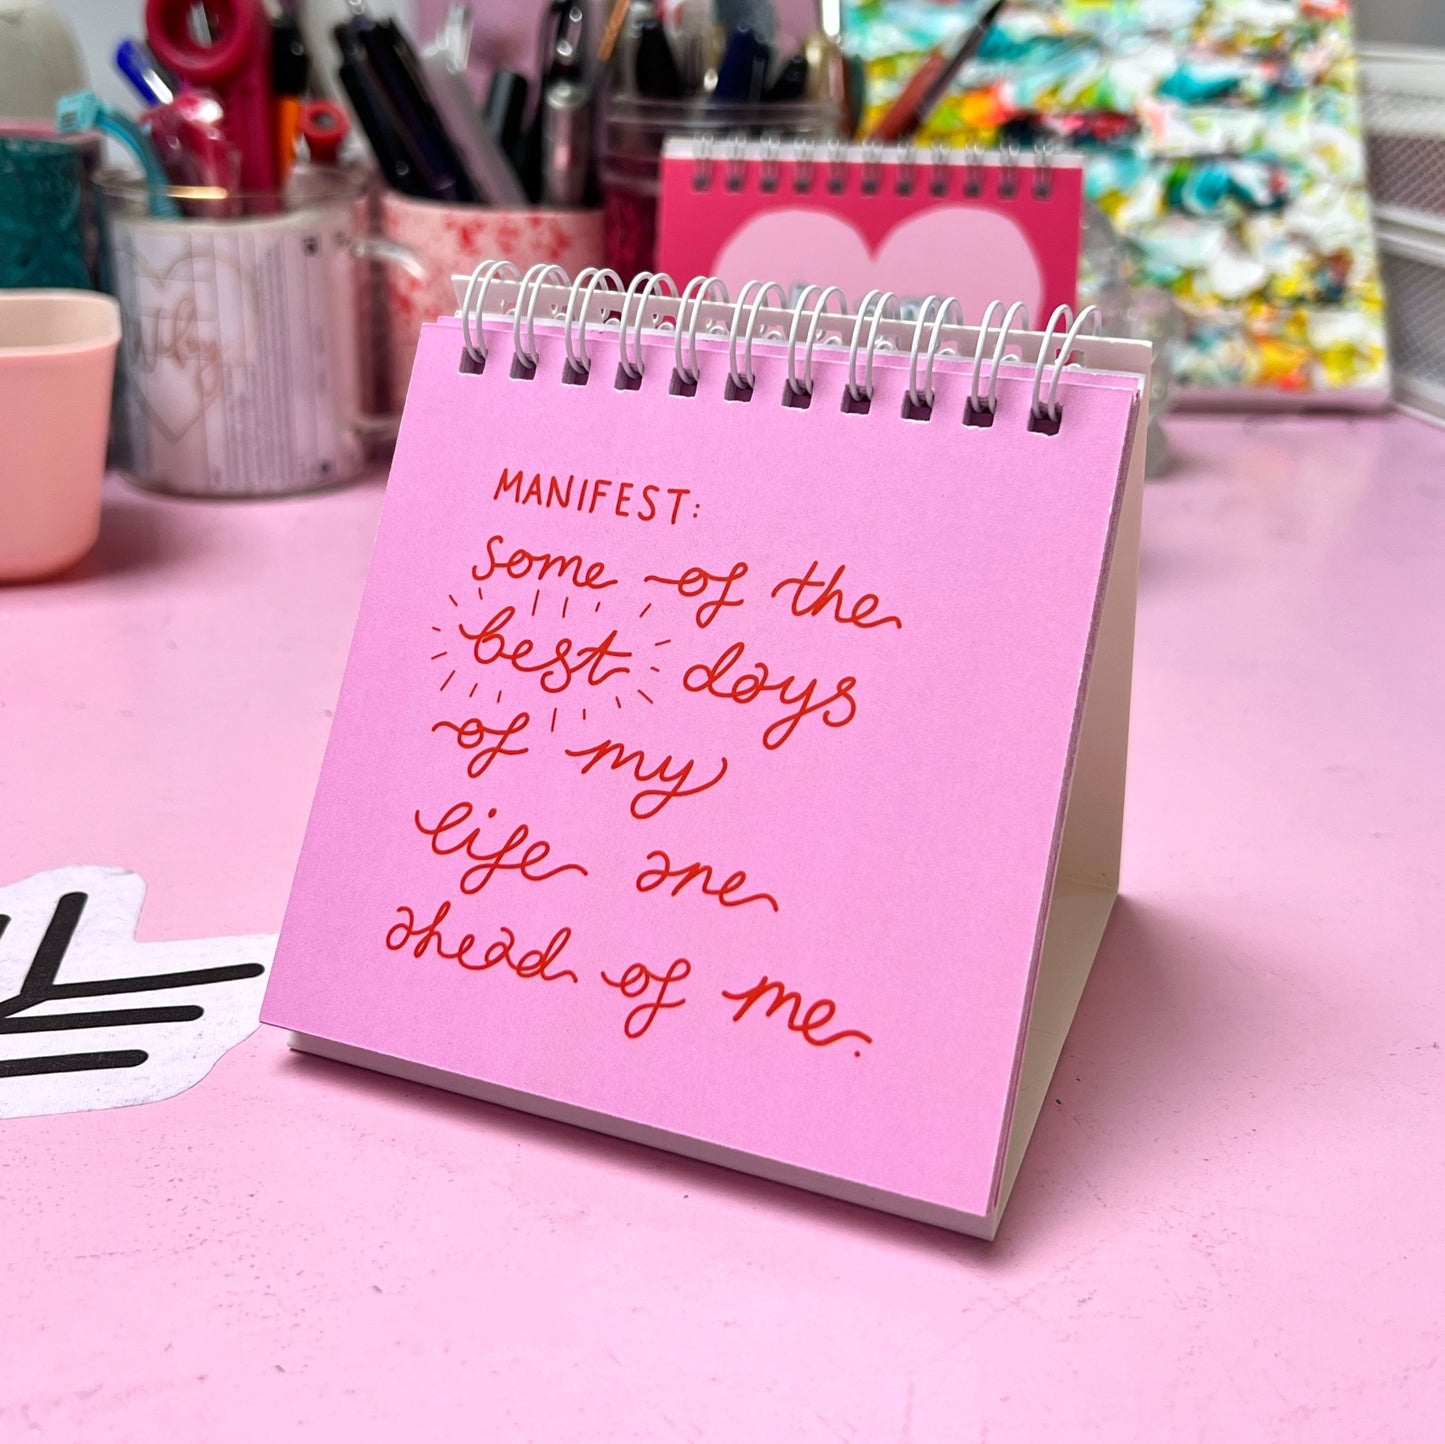 MANIFEST:
some of the
best days
of my
life are
ahead of me.